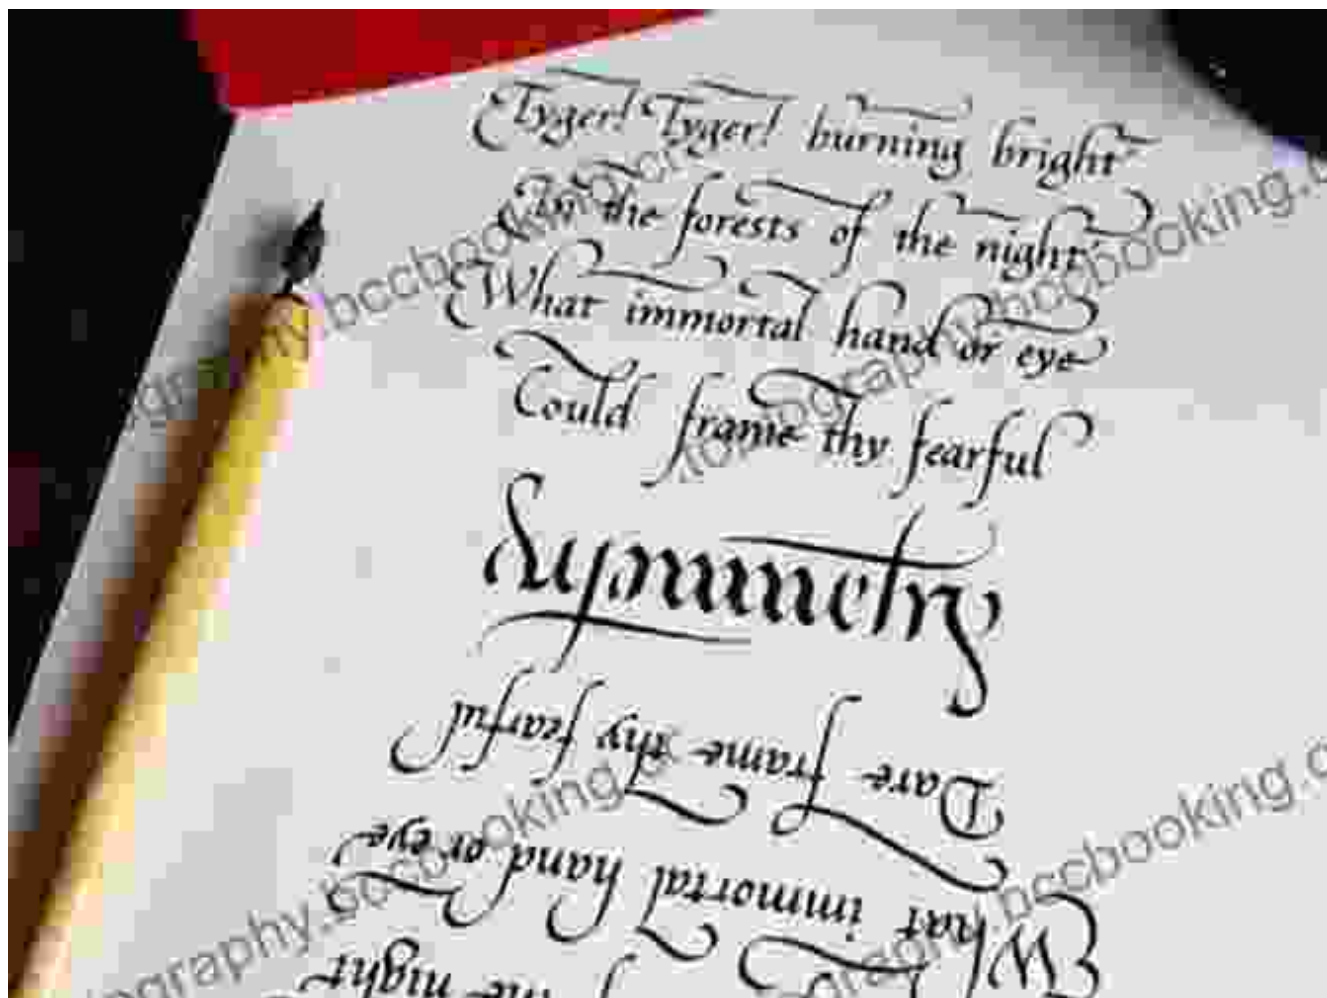 Tyger! Tyger! burning bright
In the forests of the night
What immortal hand or eye
Could frame thy fearful
symmetry
Dare frame thy fearful
What immortal hand or eye
the night